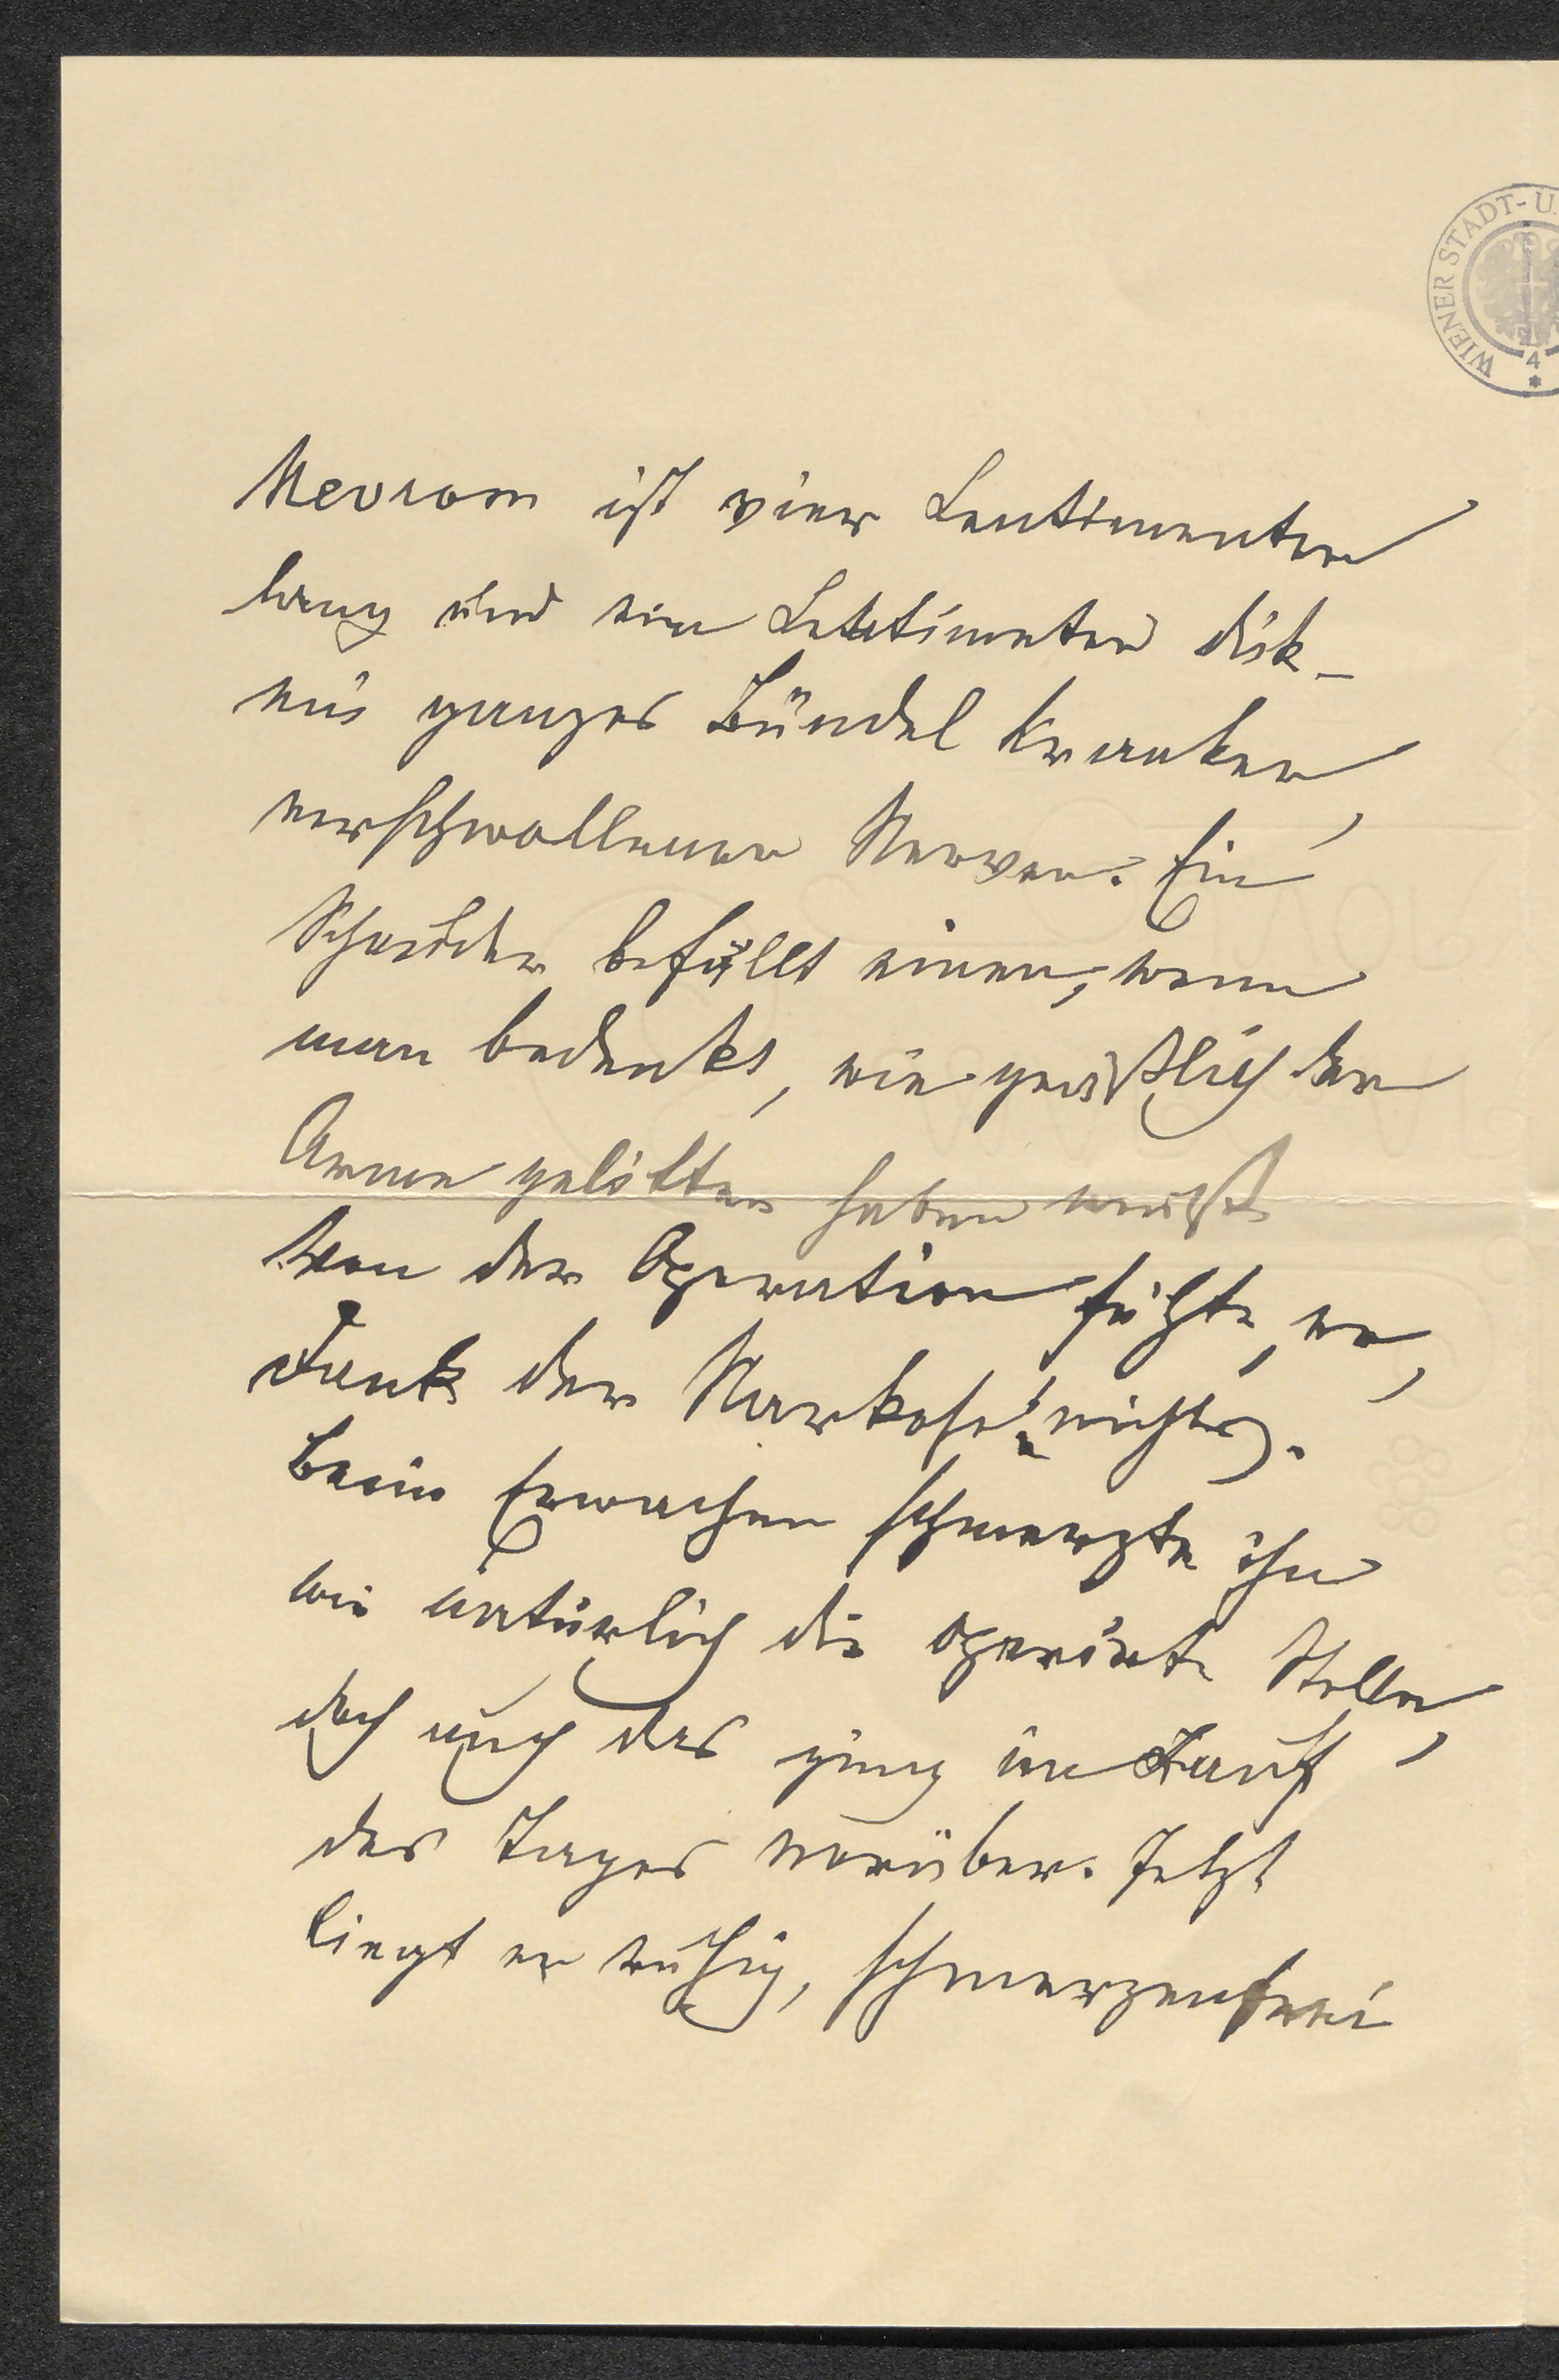 WIENER STADT-U.
4
Nevrom ist vier Centimenter
lang und ein Centimeter dick –
ein ganzes Bündel kranker,
verschwollener Nerven. Ein
Schauder befällt einen, wenn
man bedenkt, wie grässlich der
Arme gelitten haben muss.
Von der Operation fühlte er,
Dank der Narkose, nichts.
Beim Erwachen schmerzte ihn
wie natürlich die operirte Stelle,
doch auch das ging im Lauf
des Tages vorüber. Jetzt
liegt er ruhig, schmerzenfrei